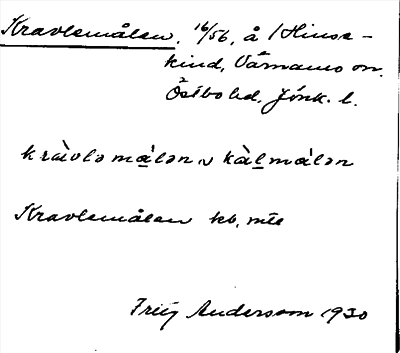 Kravlemålen, 16/56, å /Hinse-
kind, Värnamo sn.
Östbo hd, Jönk. l.
kràvləmá̱lən ~ kàḻmálən
Kravlemålen kb,
Andersson 1930